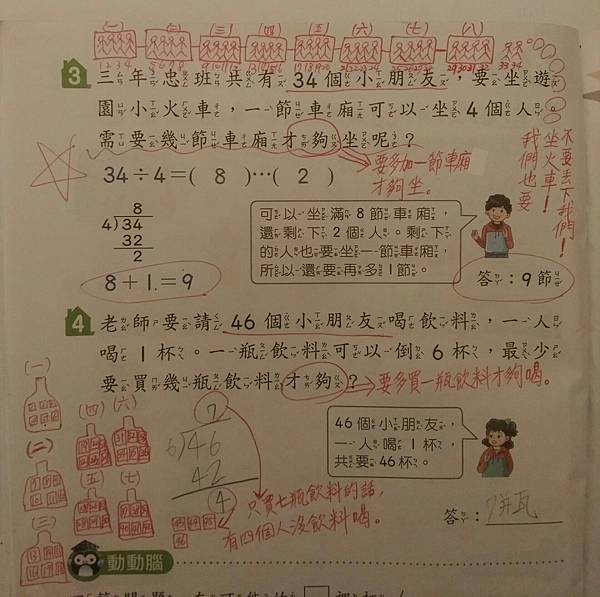 (一) (二) (三) (四) (五) (六) (七) (八)
1 2 3 4 5 6 7 8 9 10 11 12 13 14 15 16 17 18 19 20 21 22 23 24 25 26 27 28 29 30 31 32 33 34
3 三年忠班共有34個小朋友，要坐遊
園小火車，一節車廂可以坐4個人。
需要幾節車廂才夠坐呢？
要多加一節車廂
才夠坐。
不要丟下我們！
我們也要
坐火車！
34÷4=( 8 )…( 2 )
8
4)34
32
2
8+1=9
可以坐滿8節車廂，
還剩下2個人。剩下
的人也要坐一節車廂，
所以還要再多1節。
答：9節
4 老師要請46個小朋友喝飲料，一人
喝1杯。一瓶飲料可以倒6杯，最少
要買幾瓶飲料才夠？
要多買一瓶飲料才夠喝。
(一)
(二)
(三)
(四) (六)
(五) (七)
7
6)46
42
4
43 44 45
46
只買七瓶飲料的話，
有四個人沒飲料喝。
46個小朋友，
一人喝1杯，
共要46杯。
答：
動動腦